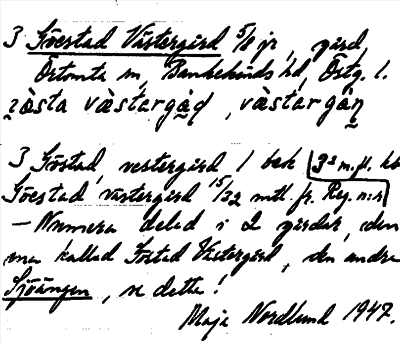 3 Göestad Västergård 5/8 jr, gård,
Örtomta sn, Bankekinds hd, Östg. l.
jö̀sta vàstargàḍ, vàstargàṇ
3 Göstad, vestergård 1 bek 3² m.fl. hb
Göestad västergård 15/32 mtl. fr. Reg. n:r
— Numera delad i 2 gårdar, den
ena kallad Göstad Västergård, den andra
Sjöängen, se detta!
Maja Nordlund 1947.